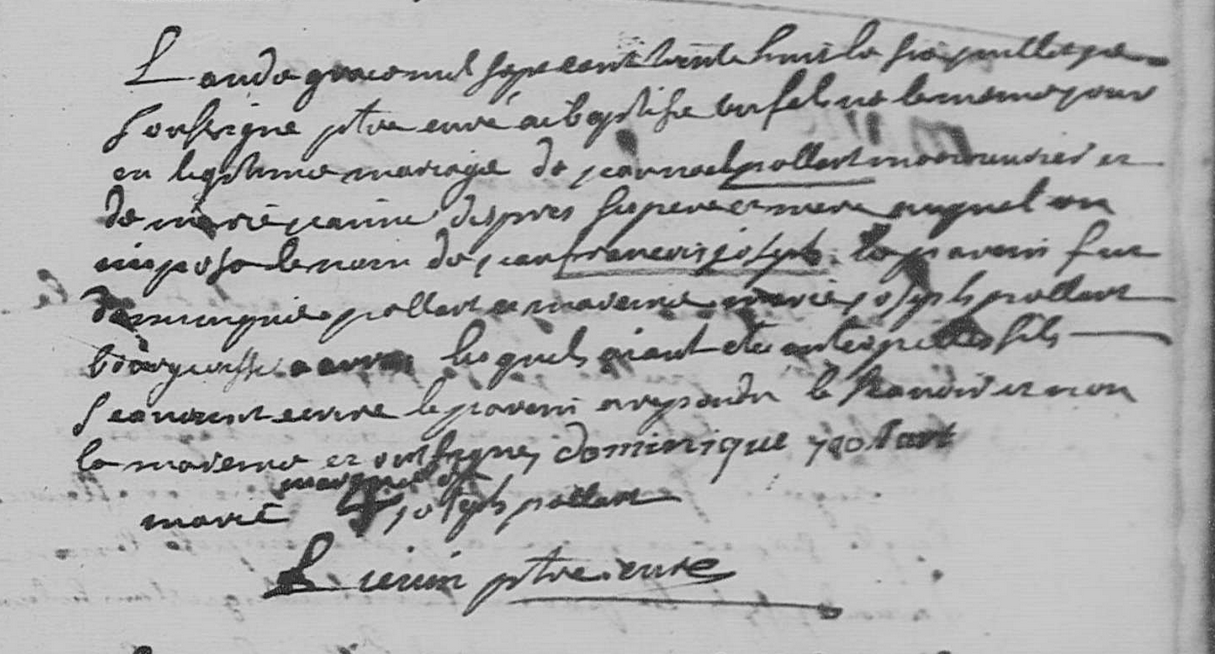 L an de grace mil sept cent trente huit le six juillet je
soussigne ptre curé ai baptise un fils né le meme jour
en legitime mariage de jean noel pollart manouvrier et
de marie jeanne despres ses pere et mere auquel on
imposa le nom de jean francois joseph. le parein fut
dominique pollart et mareine marie joseph pollart
lesquels aiant eté interpelles sils
scavoient ecrire le parein a repondu le scavoir et non
la mareine et ont signe dominique pollart
marque de
marie joseph pollart
ptre curé